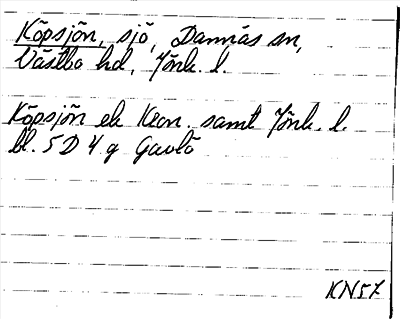 Köpsjön, sjö, Dannäs sn,
Västbo hd, Jönk. l.
Köpsjön ek Kron. samt Jönk. l.
bl. 5D 4g Gavlö
KN57